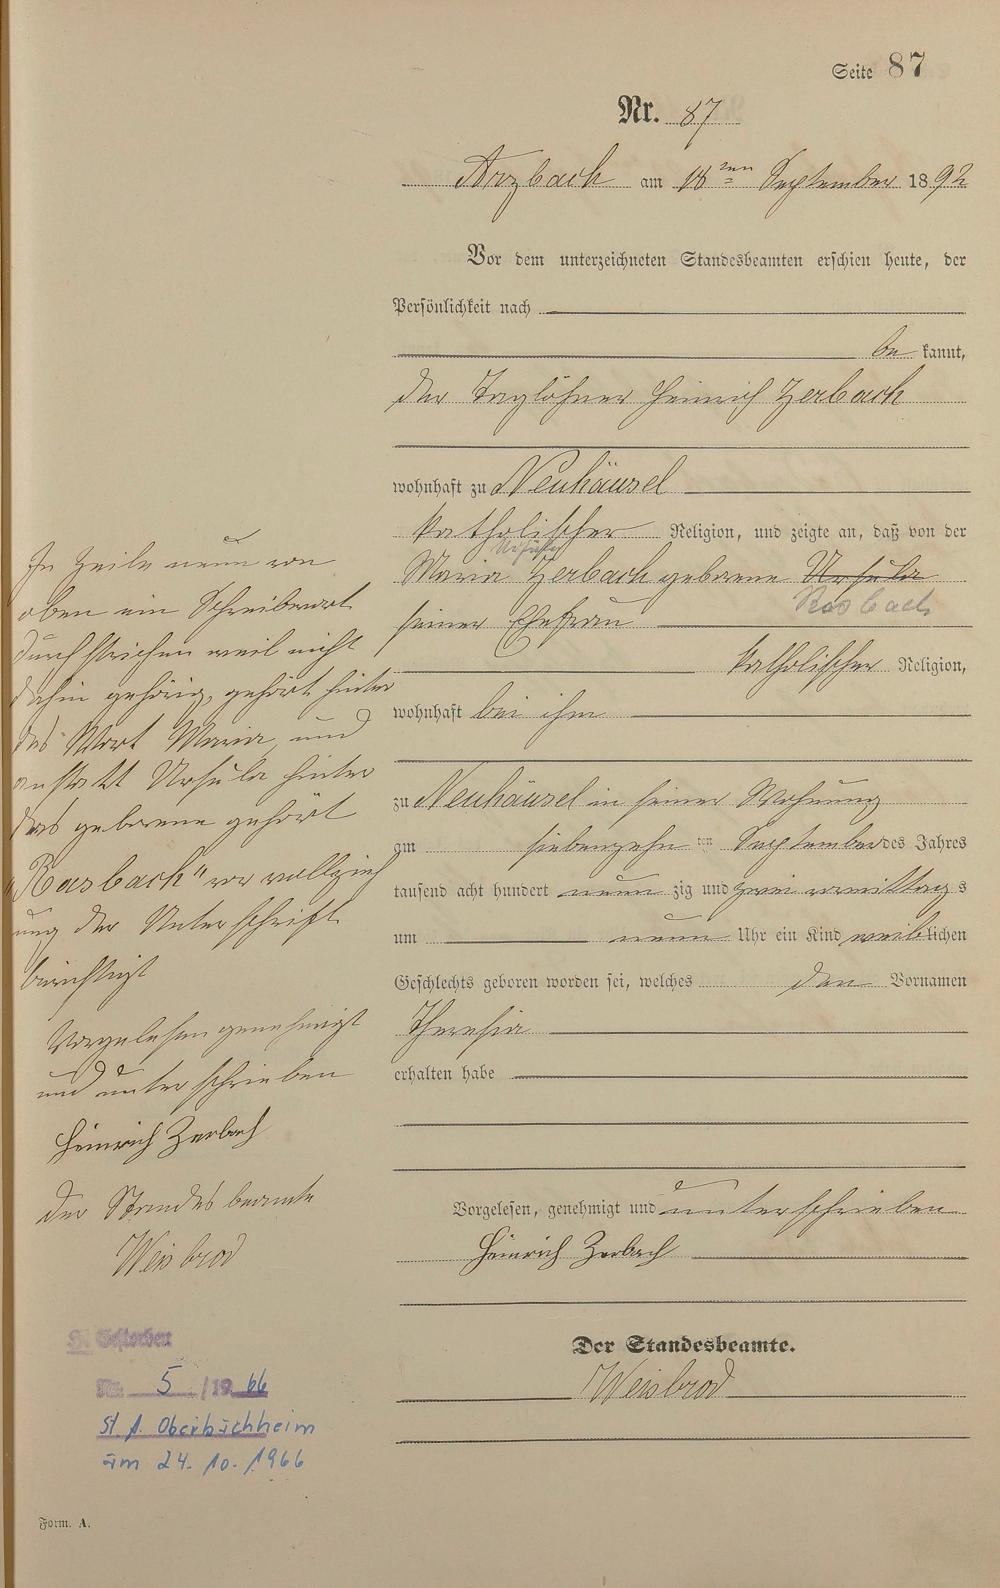 Seite 87
Nr. 87
Arzbach am 18ten September 1892
Vor dem unterzeichneten Standesbeamten erschien heute, der
Persönlichkeit nach
be kannt,
der Taglöhner Heinrich Zerbach
wohnhaft zu Neuhäusel
katholischer Religion, und zeigte an, daß von der
Ursula
Maria Zerbach geborene Ursula
Rosbach
seiner Ehefrau
katholischer Religion,
wohnhaft bei ihm
zu Neuhäusel in seiner Wohnung
am siebenzehn ten September des Jahres
tausend acht hundert neun zig und zwei vormittags
um neun Uhr ein Kind weiblichen
Geschlechts geboren worden sei, welches den Vornamen
Theresia
erhalten habe
Vorgelesen, genehmigt und unterschrieben
Heinrich Zerbach
Der Standesbeamte.
Weisbrod
In Zeile neun von
oben ein Schreibwort
durchstrichen weil nicht
dahin gehörig, gehört hinter
das Wort Maria, und
anstatt Ursula hinter
das geborene gehört
"Rosbach" vor vollzieh
ung der Unterschrift
berichtigt
Vorgelesen genehmigt
und unterschrieben
Heinrich Zerbach
Der Standesbeamte
Weisbrod
Gestorben
Nr. 5 / 1966
St. A. Oberbachheim
am 24. 10. 1966
Form. A.